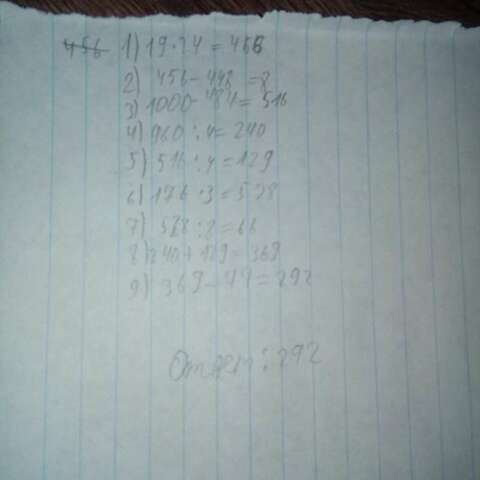 456 1) 19·24 = 456
2) 456 - 448 = 8
3) 1000 - 484 = 516
4) 960 : 4 = 240
5) 516 : 4 = 129
6) 176 · 3 = 528
7) 528 : 8 = 66
8) 240 + 129 = 369
9) 369 - 77 = 292
Ответ: 292